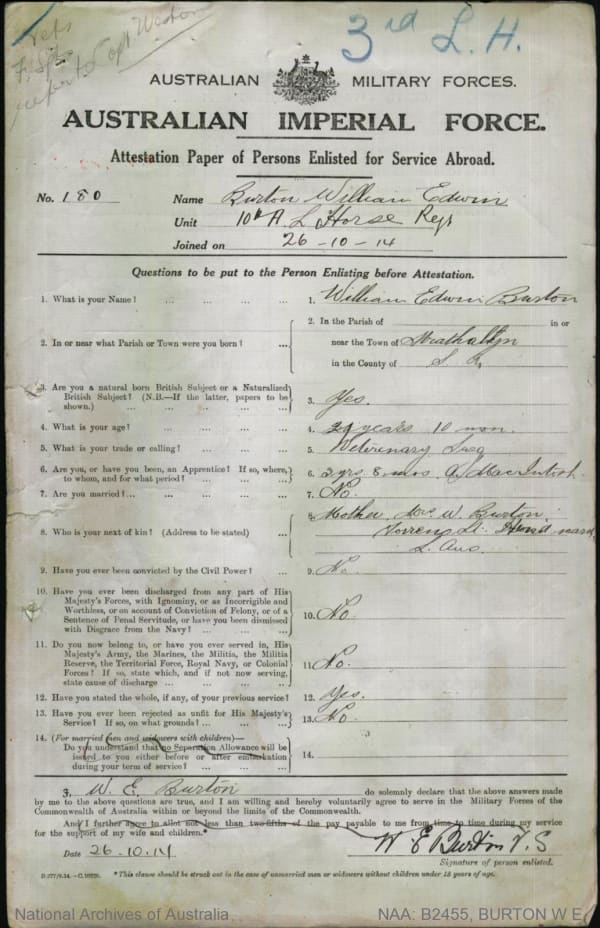 3rd L. H.
AUSTRALIAN MILITARY FORCES.
AUSTRALIAN IMPERIAL FORCE.
Attestation Paper of Persons Enlisted for Service Abroad.
No. 180 Name Burton William Edwin
Unit 10th A L Horse Regt
Joined on 26-10-14
Questions to be put to the Person Enlisting before Attestation.
1. What is your Name? ... ... ... ... 1. William Edwin Burton
2. In or near what Parish or Town were you born? ... 2. In the Parish of in or
near the Town of Strathalbyn
in the County of S. A.
3. Are you a natural born British Subject or a Naturalized
British Subject? (N.B.—If the latter, papers to be
shown.) ... ... ... ... 3. Yes.
4. What is your age? ... ... ... ... 4. years 10 mon.
5. What is your trade or calling? ... ... ... 5. Veterinary Surg
6. Are you, or have you been, an Apprentice? If so, where,
to whom, and for what period? ... ... ... 6. 3 yrs 8 mos A MacIntosh
7. Are you married? ... ... ... ... 7. No.
8. Who is your next of kin? (Address to be stated) ... 8. Mother Mrs W. Burton
Torrens St.
S. Aus.
9. Have you ever been convicted by the Civil Power? ... 9. No.
10. Have you ever been discharged from any part of His
Majesty's Forces, with Ignominy, or as Incorrigible and
Worthless, or on account of Conviction of Felony, or of a
Sentence of Penal Servitude, or have you been dismissed
with Disgrace from the Navy? ... ... ... 10. No.
11. Do you now belong to, or have you ever served in, His
Majesty's Army, the Marines, the Militia, the Militia
Reserve, the Territorial Force, Royal Navy, or Colonial
Forces? If so, state which, and if not now serving,
state cause of discharge ... ... ... 11. No.
12. Have you stated the whole, if any, of your previous service? 12. Yes.
13. Have you ever been rejected as unfit for His Majesty's
Service? If so, on what grounds? ... ... ... 13. No.
14. (For married men and widowers with children)—
Do you understand that no Separation Allowance will be
issued to you either before or after embarkation
during your term of service? ... ... ... 14.
I, W. E. Burton do solemnly declare that the above answers made
by me to the above questions are true, and I am willing and hereby voluntarily agree to serve in the Military Forces of the
Commonwealth of Australia within or beyond the limits of the Commonwealth.
And I further agree to allot not less than two-fifths of the pay payable to me from time to time during my service
for the support of my wife and children.*
Date 26.10.14 W E Burton V.S
Signature of person enlisted.
*This clause should be struck out in the case of unmarried men or widowers without children under 18 years of age.
National Archives of Australia NAA: B2455, BURTON W E